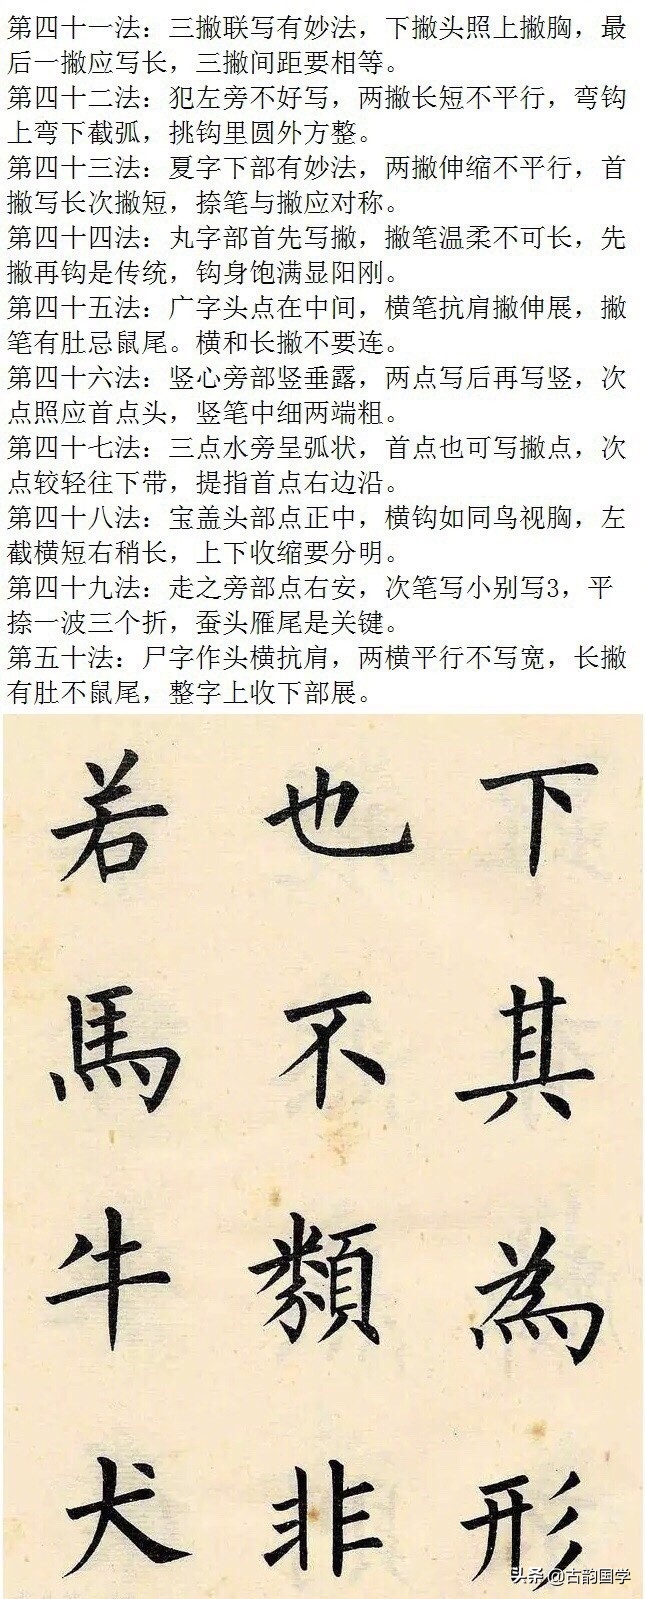 第四十一法：三撇联写有妙法，下撇头照上撇胸，最
后一撇应写长，三撇间距要相等。
第四十二法：犯左旁不好写，两撇长短不平行，弯钩
上弯下截弧，挑钩里圆外方整。
第四十三法：夏字下部有妙法，两撇伸缩不平行，首
撇写长次撇短，捺笔与撇应对称。
第四十四法：丸字部首先写撇，撇笔温柔不可长，先
撇再钩是传统，钩身饱满显阳刚。
第四十五法：广字头点在中间，横笔抗肩撇伸展，撇
笔有肚忌鼠尾。横和长撇不要连。
第四十六法：竖心旁部竖垂露，两点写后再写竖，次
点照应首点头，竖笔中细两端粗。
第四十七法：三点水旁呈弧状，首点也可写撇点，次
点较轻往下带，提指首点右边沿。
第四十八法：宝盖头部点正中，横钩如同鸟视胸，左
截横短右稍长，上下收缩要分明。
第四十九法：走之旁部点右安，次笔写小别写3，平
捺一波三个折，蚕头雁尾是关键。
第五十法：尸字作头横抗肩，两横平行不写宽，长撇
有肚不鼠尾，整字上收下部展。
下其為形
也不類非
若馬牛犬
头条 @古韵国学